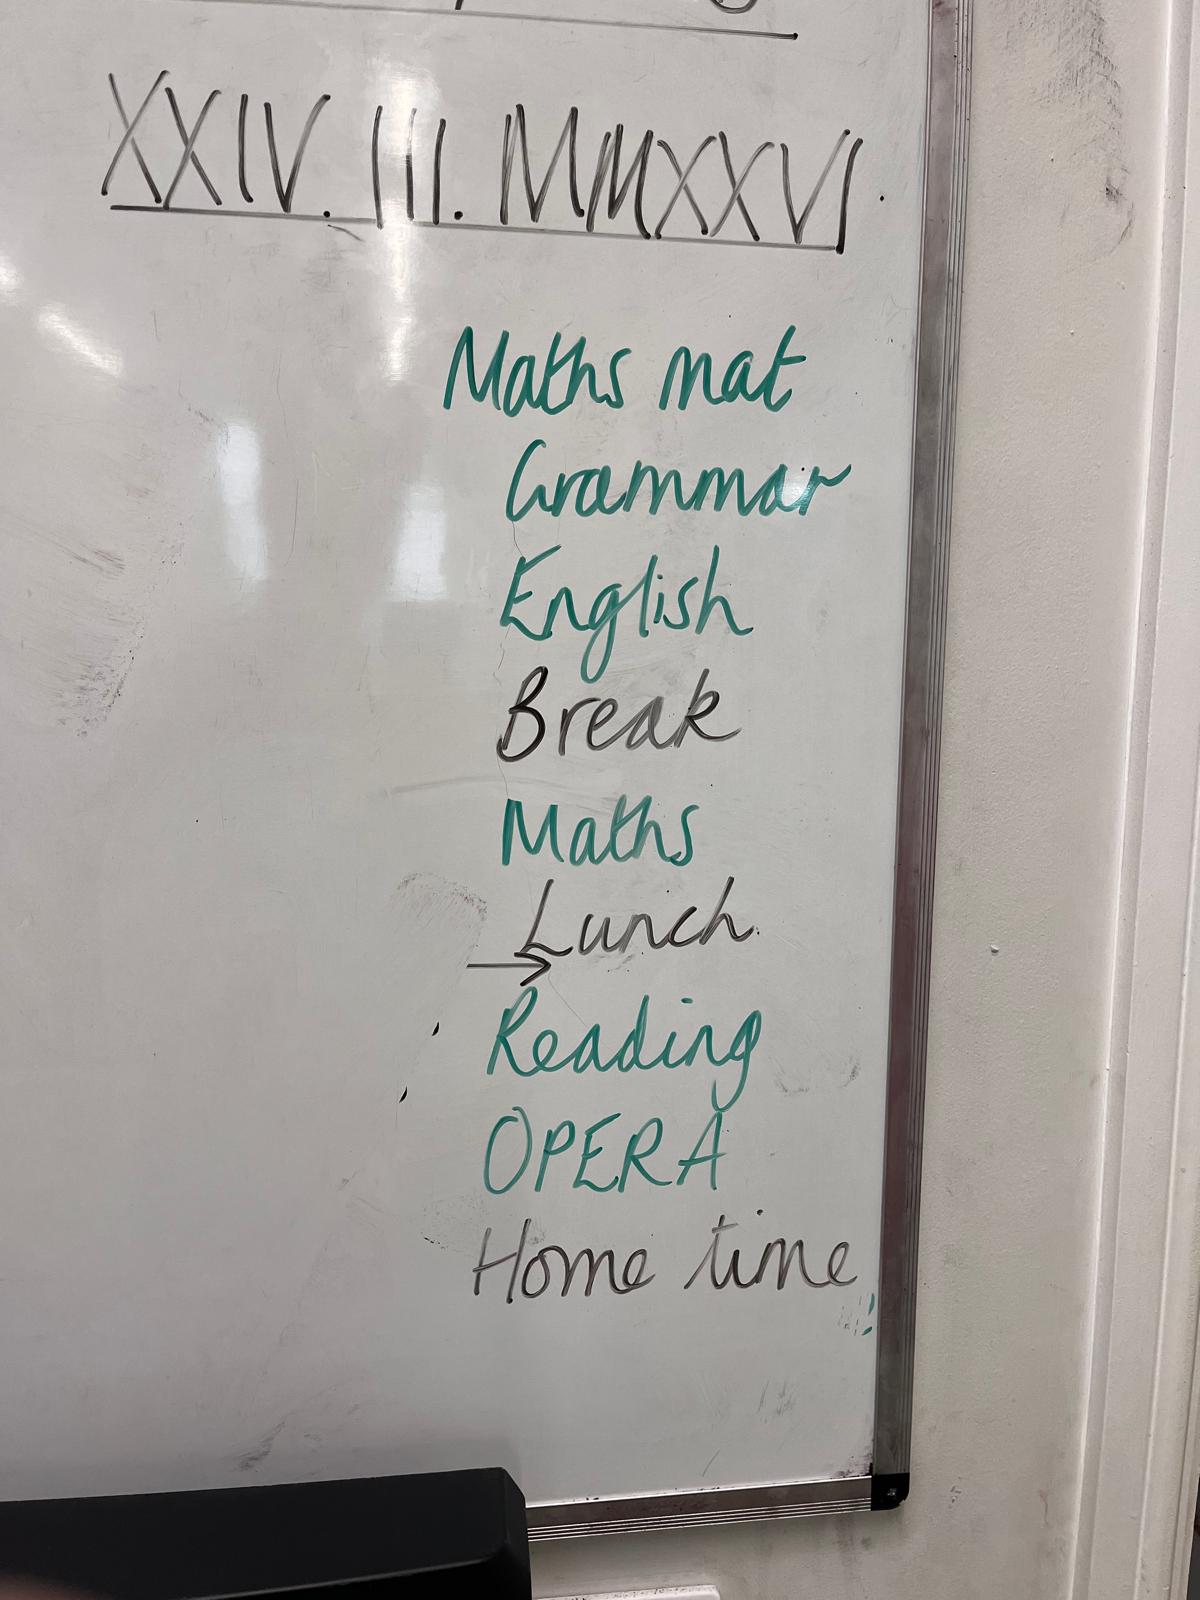 XXIV. III. MMXXVI
Maths mat
Grammar
English
Break
Maths
Lunch
→
Reading
OPERA
Home time